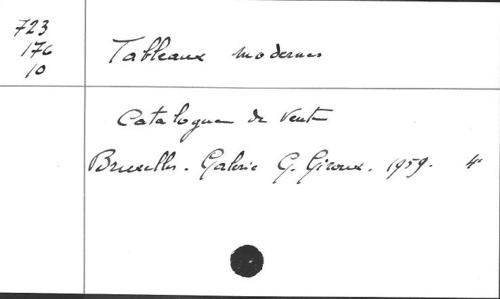 723
176
10
Tableaux modernes
Catalogue de vente
Bruxelles. Galerie G. Giroux. 1959. 4°